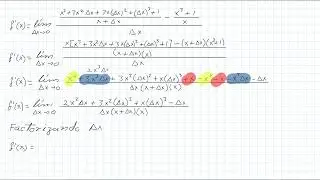 f'(x) = lim Δx→0 ((x³+3x²Δx+3x(Δx)²+(Δx)³+1)/(x+Δx) - (x³+1)/x)/Δx
f'(x) = lim Δx→0 ((x[x³+3x²Δx+3x(Δx)²+(Δx)³+1]-(x+Δx)(x³+1))/(x(x+Δx)))/Δx
2x³Δx
f'(x) = lim Δx→0 (x⁴+3x³Δx+3x²(Δx)²+x(Δx)³+x-x⁴-x-x³Δx-Δx)/(Δx(x+Δx)(x))
f'(x) = lim Δx→0 (2x³Δx+3x²(Δx)²+x(Δx)³-Δx)/(Δx(x+Δx)(x))
Factorizando Δx
f'(x) =